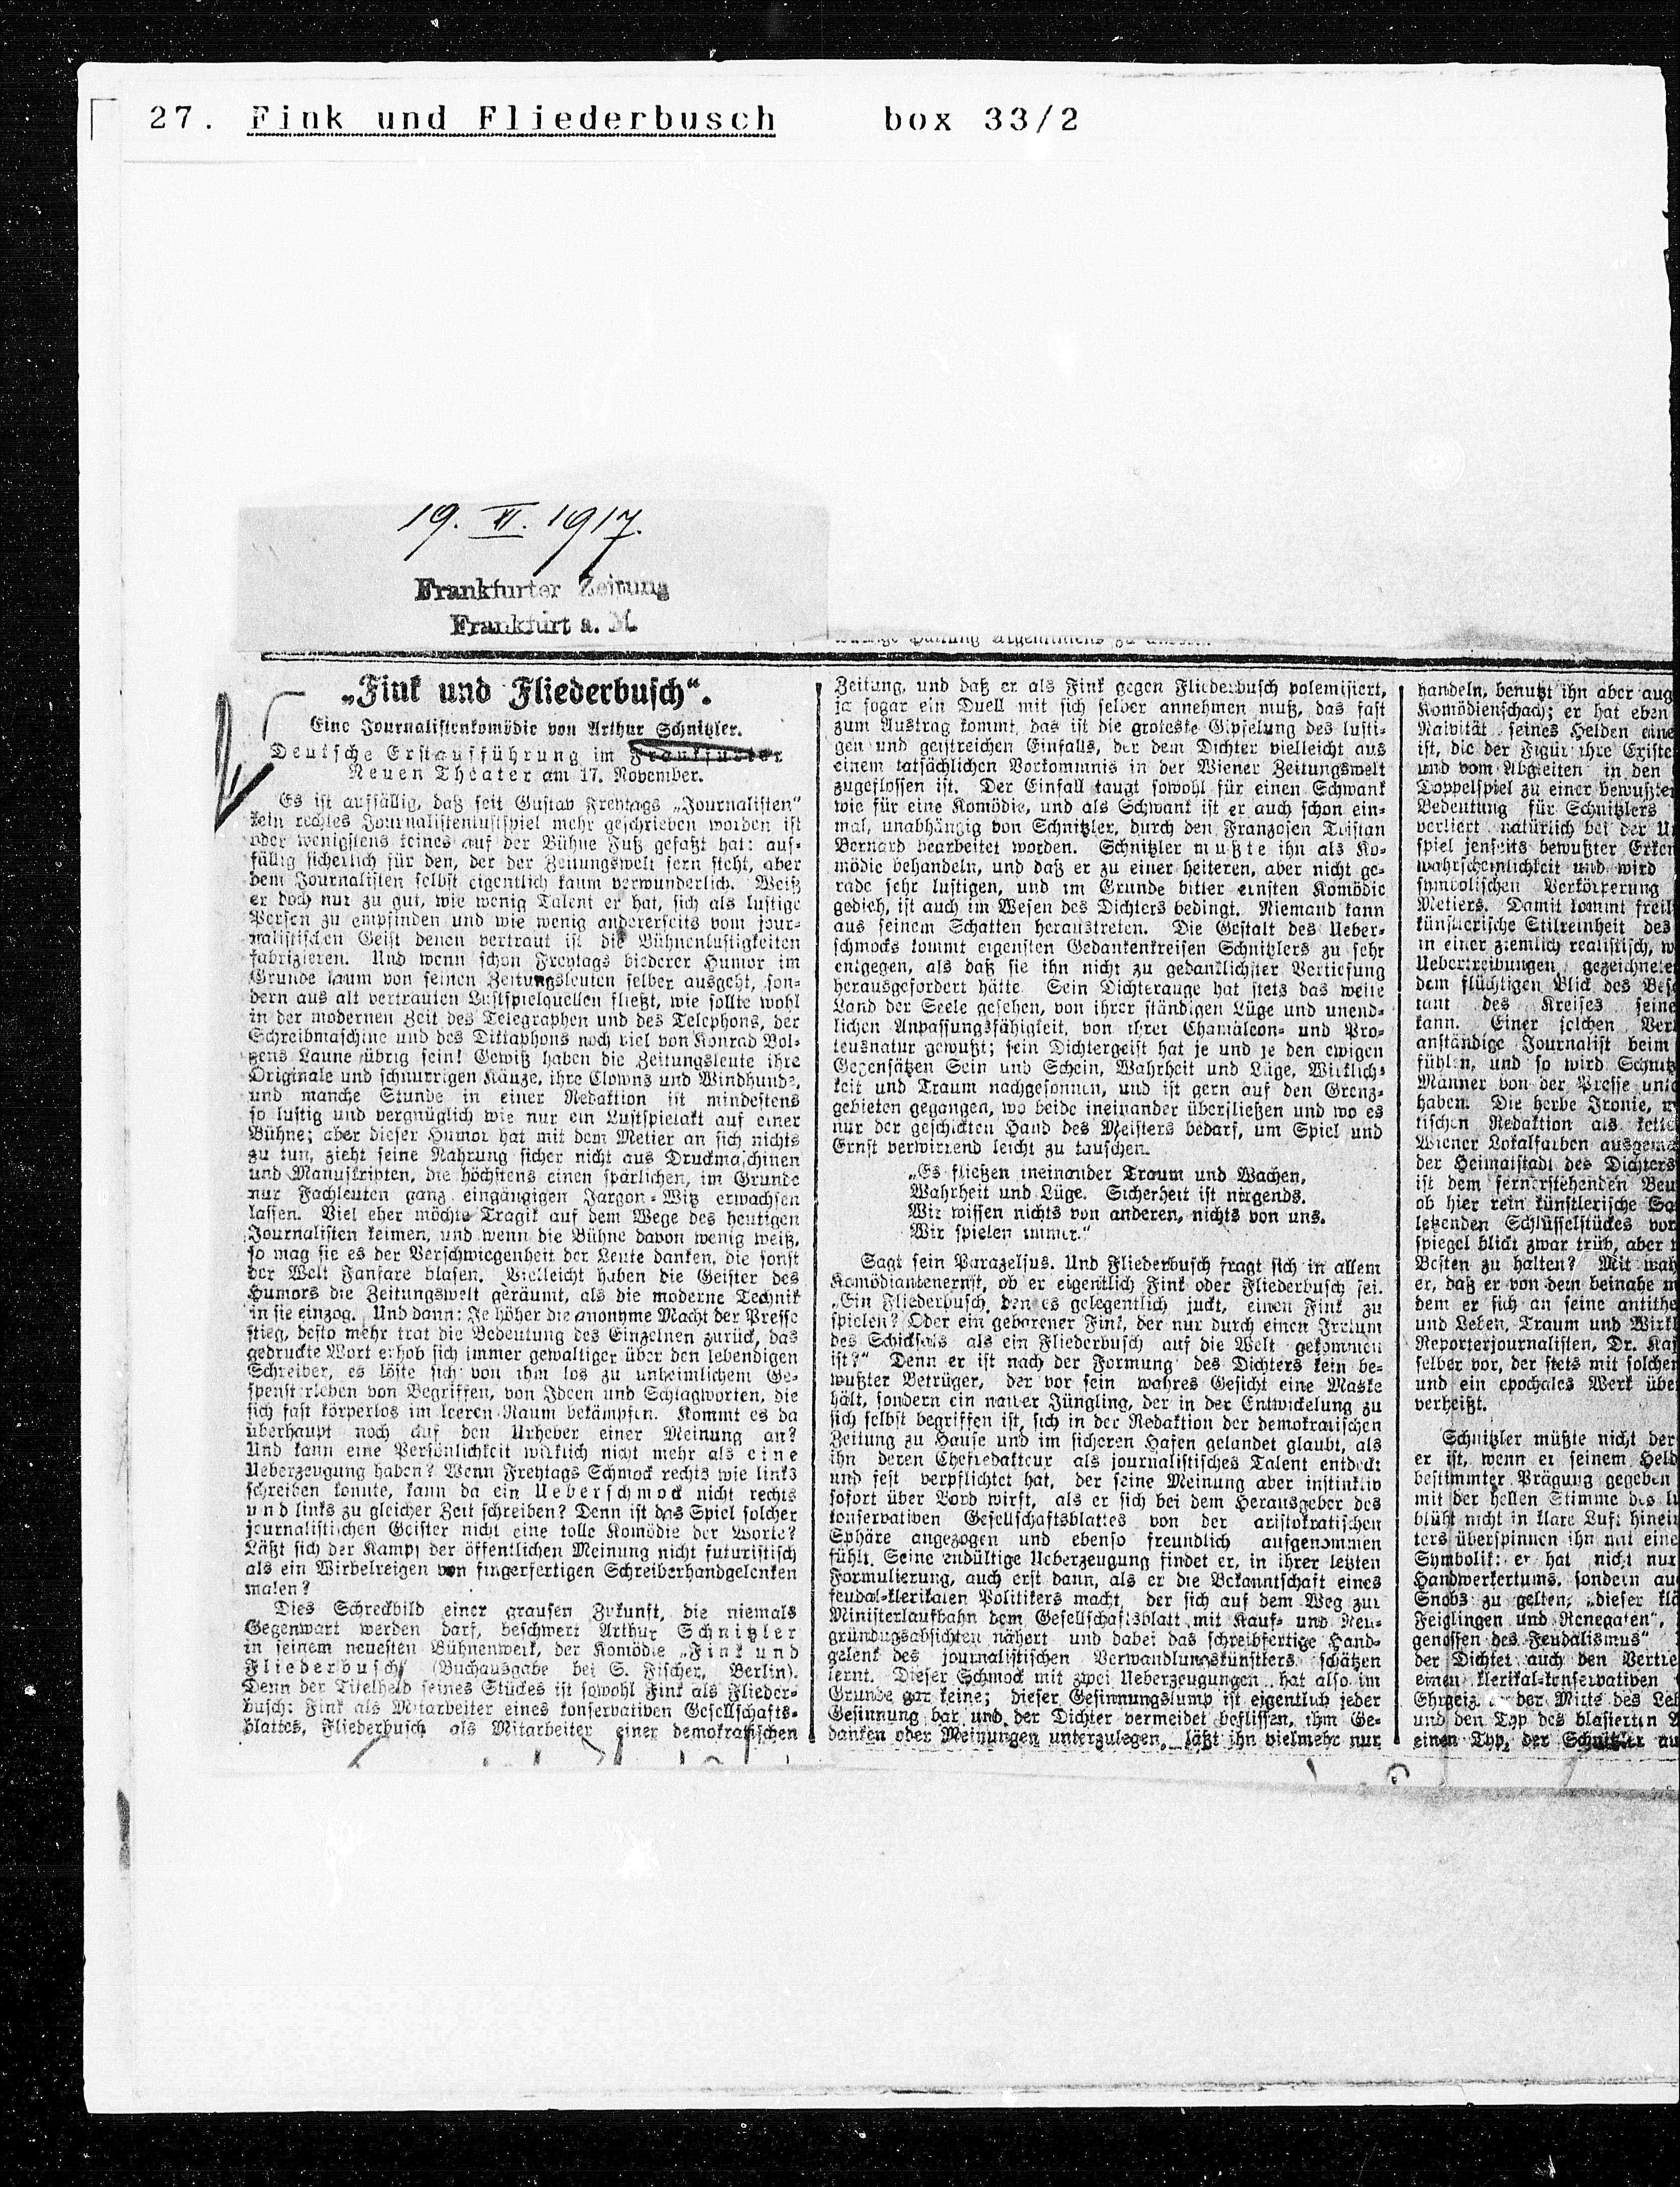 27. Fink und Fliederbusch box 33/2
19. XI. 1917.
Frankfurter Zeitung
Frankfurt a. M.
„Fink und Fliederbusch“.
Eine Journalistenkomödie von Arthur Schnitzler.
Deutsche Erstaufführung im Frankfurter
Neuen Theater am 17. November.
Es ist auffällig, daß seit Gustav Freytags „Journalisten“
kein rechtes Journalistenlustspiel mehr geschrieben worden ist
oder wenigstens keines auf der Bühne Fuß gefaßt hat: auf-
fällig sicherlich für den, der der Zeitungswelt fern steht, aber
dem Journalisten selbst eigentlich kaum verwunderlich. Weiß
er doch nur zu gut, wie wenig Talent er hat, sich als lustige
Person zu empfinden und wie wenig andererseits vom jour-
nalistischen Geist denen vertraut ist die Bühnenlustigkeiten
fabrizieren. Und wenn schon Freytags biederer Humor im
Grunde kaum von seinen Zeitungsleuten selber ausgeht, son-
dern aus alt vertrauten Lustspielquellen fließt, wie sollte wohl
in der modernen Zeit des Telegraphen und des Telephons, der
Schreibmaschine und des Diktaphons noch viel von Konrad Bol-
zens Laune übrig sein! Gewiß haben die Zeitungsleute ihre
Originale und schnurrigen Käuze, ihre Clowns und Windhunde,
und manche Stunde in einer Redaktion ist mindestens
so lustig und vergnüglich wie nur ein Lustspielakt auf einer
Bühne; aber dieser Humor hat mit dem Metier an sich nichts
zu tun, zieht seine Nahrung sicher nicht aus Druckmaschinen
und Manuskripten, die höchstens einen spärlichen, im Grunde
nur Fachleuten ganz eingängigen Jargon-Witz erwachsen
lassen. Viel eher möchte Tragik auf dem Wege des heutigen
Journalisten keimen, und wenn die Bühne davon wenig weiß,
so mag sie es der Verschwiegenheit der Leute danken, die sonst
der Welt Fanfare blasen. Vielleicht haben die Geister des
Humors die Zeitungswelt geräumt, als die moderne Technik
in sie einzog. Und dann: Je höher die anonyme Macht der Presse
stieg, desto mehr trat die Bedeutung des Einzelnen zurück, das
gedruckte Wort erhob sich immer gewaltiger über den lebendigen
Schreiber, es löste sich von ihm los zu unheimlichem Ge-
spensterleben von Begriffen, von Ideen und Schlagworten, die
sich fast körperlos im leeren Raum bekämpfen. Kommt es da
überhaupt noch auf den Urheber einer Meinung an?
Und kann eine Persönlichkeit wirklich nicht mehr als eine
Ueberzeugung haben? Wenn Freytags Schmock rechts wie links
schreiben konnte, kann da ein Ueberschmock nicht rechts
und links zu gleicher Zeit schreiben? Denn ist das Spiel solcher
journalistischen Geister nicht eine tolle Komödie der Worte?
Läßt sich der Kampf der öffentlichen Meinung nicht futuristisch
als ein Wirbelreigen von fingerfertigen Schreiberhandgelenken
malen?
Dies Schreckbild einer grausen Zukunft, die niemals
Gegenwart werden darf, beschwert Arthur Schnitzler
in seinem neuesten Bühnenwerk, der Komödie „Fink und
Fliederbusch“ (Buchausgabe bei S. Fischer, Berlin).
Denn der Titelheld seines Stückes ist sowohl Fink als Flieder-
busch: Fink als Mitarbeiter eines konservativen Gesellschafts-
blattes, Fliederbusch als Mitarbeiter einer demokratischen
Zeitung, und daß er als Fink gegen Fliederbusch polemisiert,
ja sogar ein Duell mit sich selber annehmen muß, das fast
zum Austrag kommt, das ist die groteske Gipfelung des lusti-
gen und geistreichen Einfalls, der dem Dichter vielleicht aus
einem tatsächlichen Vorkommnis in der Wiener Zeitungswelt
zugeflossen ist. Der Einfall taugt sowohl für einen Schwank
wie für eine Komödie, und als Schwank ist er auch schon ein-
mal, unabhängig von Schnitzler, durch den Franzosen Tristan
Bernard bearbeitet worden. Schnitzler mußte ihn als Ko-
mödie behandeln, und daß er zu einer heiteren, aber nicht ge-
rade sehr lustigen, und im Grunde bitter ernsten Komödie
gedieh, ist auch im Wesen des Dichters bedingt. Niemand kann
aus seinem Schatten heraustreten. Die Gestalt des Ueber-
schmocks kommt eigensten Gedankenkreisen Schnitzlers zu sehr
entgegen, als daß sie ihn nicht zu gedanklichster Vertiefung
herausgefordert hätte. Sein Dichterauge hat stets das weite
Land der Seele gesehen, von ihrer ständigen Lüge und unend-
lichen Anpassungsfähigkeit, von ihrer Chamäleon- und Pro-
teusnatur gewußt; sein Dichtergeist hat je und je den ewigen
Gegensätzen Sein und Schein, Wahrheit und Lüge, Wirklich-
keit und Traum nachgesonnen, und ist gern auf den Grenz-
gebieten gegangen, wo beide ineinander überfließen und wo es
nur der geschickten Hand des Meisters bedarf, um Spiel und
Ernst verwirrend leicht zu tauschen.
„Es fließen ineinander Traum und Wachen,
Wahrheit und Lüge. Sicherheit ist nirgends.
Wir wissen nichts von anderen, nichts von uns.
Wir spielen immer.“
Sagt sein Parazelsus. Und Fliederbusch fragt sich in allem
Komödiantenernst, ob er eigentlich Fink oder Fliederbusch sei.
„Ein Fliederbusch, den es gelegentlich juckt, einen Fink zu
spielen? Oder ein geborener Fink, der nur durch einen Irrtum
des Schicksals als ein Fliederbusch auf die Welt gekommen
ist?“ Denn er ist nach der Formung des Dichters kein be-
wußter Betrüger, der vor sein wahres Gesicht eine Maske
hält, sondern ein naiver Jüngling, der in der Entwickelung zu
sich selbst begriffen ist, sich in der Redaktion der demokratischen
Zeitung zu Hause und im sicheren Hafen gelandet glaubt, als
ihn deren Chefredakteur als journalistisches Talent entdeckt
und fest verpflichtet hat, der seine Meinung aber instinktiv
sofort über Bord wirft, als er sich bei dem Herausgeber des
konservativen Gesellschaftsblattes von der aristokratischen
Sphäre angezogen und ebenso freundlich aufgenommen
fühlt. Seine endültige Ueberzeugung findet er, in ihrer letzten
Formulierung, auch erst dann, als er die Bekanntschaft eines
feudal-klerikalen Politikers macht, der sich auf dem Weg zur
Ministerlaufbahn dem Gesellschaftsblatt mit Kauf- und Neu-
gründungsabsichten nähert und dabei das schreibfertige Hand-
gelenk des journalistischen Verwandlungskünstlers schätzen
lernt. Dieser Schmock mit zwei Ueberzeugungen hat also im
Grunde gar keine; dieser Gesinnungslump ist eigentlich jeder
Gesinnung bar und der Dichter vermeidet beflissen, ihm Ge-
danken oder Meinungen unterzulegen, läßt ihn vielmehr nur
handeln, benutzt ihn aber aug
Komödienschach; er hat eben
Naivität seines Helden eine
ist, die der Figur ihre Existe
und vom Abgleiten in den
Doppelspiel zu einer bewußten
Bedeutung für Schnitzlers
verliert natürlich bei der U
spiel jenseits bewußter Erken
wahrscheinlichkeit und wird
symbolischen Verkörperung
Metiers. Damit kommt freil
künstlerische Stileinheit des
in einer ziemlich realistisch, w
Uebertreibungen gezeichneten
dem flüchtigen Blick des Bes
tant des Kreises seine
kann. Einer solchen Ver
anständige Journalist beim
fühlen, und so wird Schnitz
Männer von der Presse unt
haben. Die herbe Ironie,
tischen Redaktion als
Wiener Lokalfarben ausgema
der Heimatstadt des Dichters
ist dem fernerstehenden Beu
ob hier rein künstlerische
letzenden Schlüsselstückes vor
spiegel blickt zwar trüb, aber
Besten zu halten? Mit wah
er, daß er von dem beinahe
dem er sich an seine antithe
und Leben, Traum und Wirkl
Reporterjournalisten, Dr. Kaj
selber vor, der stets mit solchen
und ein epochales Werk übe
verheißt.
Schnitzler müßte nicht der
er ist, wenn er seinem Held
bestimmter Prägung gegeben
mit der hellen Stimme des
blüht nicht in klare Luft hinein
ters überspinnen ihn mit eine
Symbolik: er hat nicht nur
Handwerkertums, sondern au
Snobs zu gelten, „dieser kl
Feiglingen und Renegaten“,
genossen des Feudalismus“
der Dichter auch den Vertre
einen klerikal-konservativen
Ehrgeiz der Mitte des Leb
und den Typ des blasierten A
einen Typ, der Schnitzler au